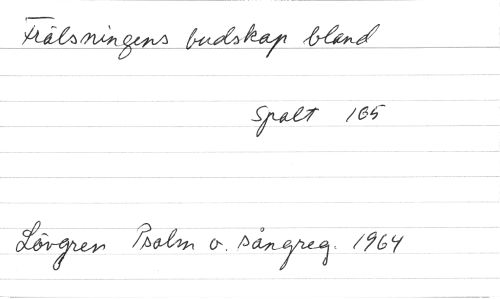 Frälsningens budskap bland
Spalt 165
Lövgren Psalm o. sångreg. 1964